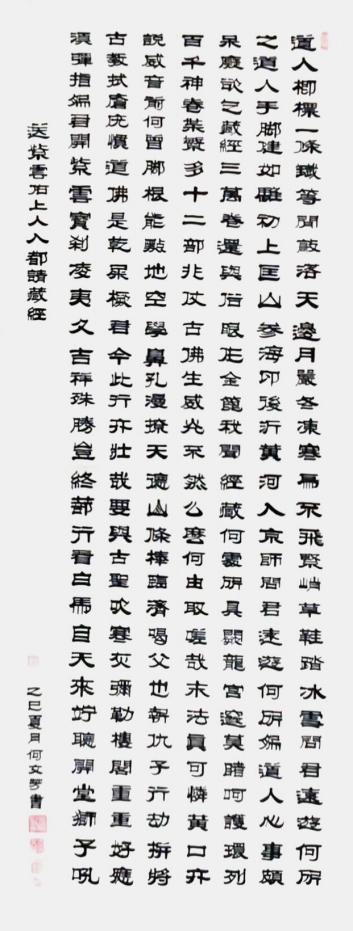 道人楖標一條鐵等閒敲落天邊月嚴冬凍寒鳥不飛緊峭草鞋踏冰雪問君遠遊何所
之道人手腳健如初上匡山參海印後泝黃河入京師問君遠遊何所為道人心事頗
呆癡欲乞藏經三萬卷還與俗眼作金篦我聞經藏何處所具闕龍宮邃莫睹呵護環列
百千神卷袠繁多十二部非仗古佛生威光不然么麼何由取嗟哉末法真可憐黃口亦
說威音前何曾腳根能點地空學鼻孔漫撩天德山條棒臨濟喝父也報仇子行劫拚將
古教拭瘡疣慣道佛是乾屎橛君今此行亦壯哉要與古聖吹寒灰彌勒樓閣重重好應
須彈指為君開紫雲寶剎凌夷久吉祥殊勝豈終蔀行看白馬自天來竚聽開堂獅子吼
送紫雲佑上人入都請藏經
乙巳夏月何文芳書